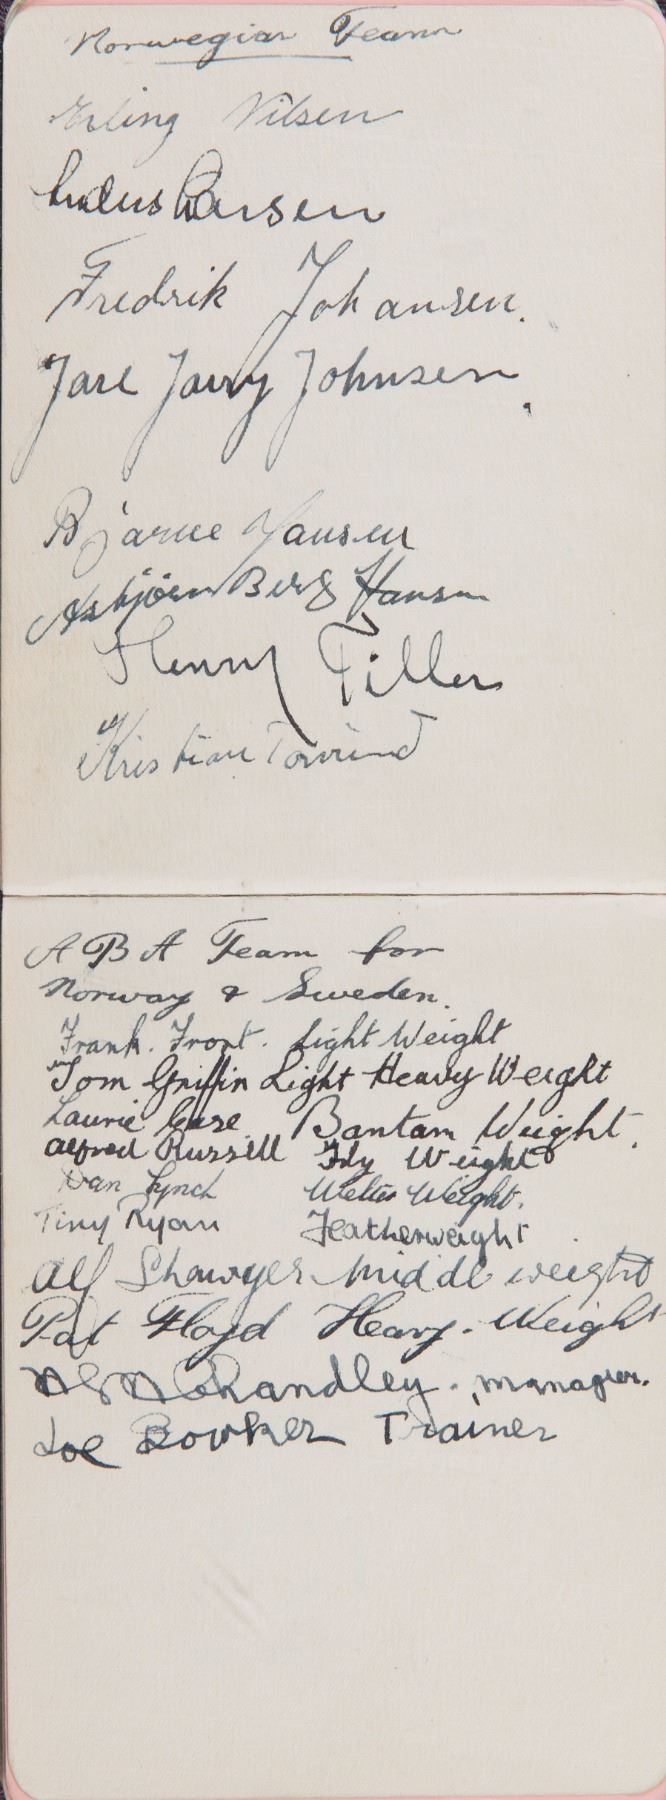 Norwegian Team
Erling Nilsen
Larsen
Fredrik Johansen.
Jarl Johnsen
Bjarne Hansen
Asbjörn Berg Hansen
Henry Tiller
Kristian
A B A Team for
Norway & Sweden.
Frank. Frost. Light Weight
Tom Griffin Light Heavy Weight
Laurie Case Bantam Weight.
Alfred Russell Fly Weight
Dan Lynch Welter Weight.
Tiny Ryan Featherweight
Alf Shawyer Middle weight
Pat Floyd Heavy. Weight
Chandley. manager.
Joe Bowker Trainer